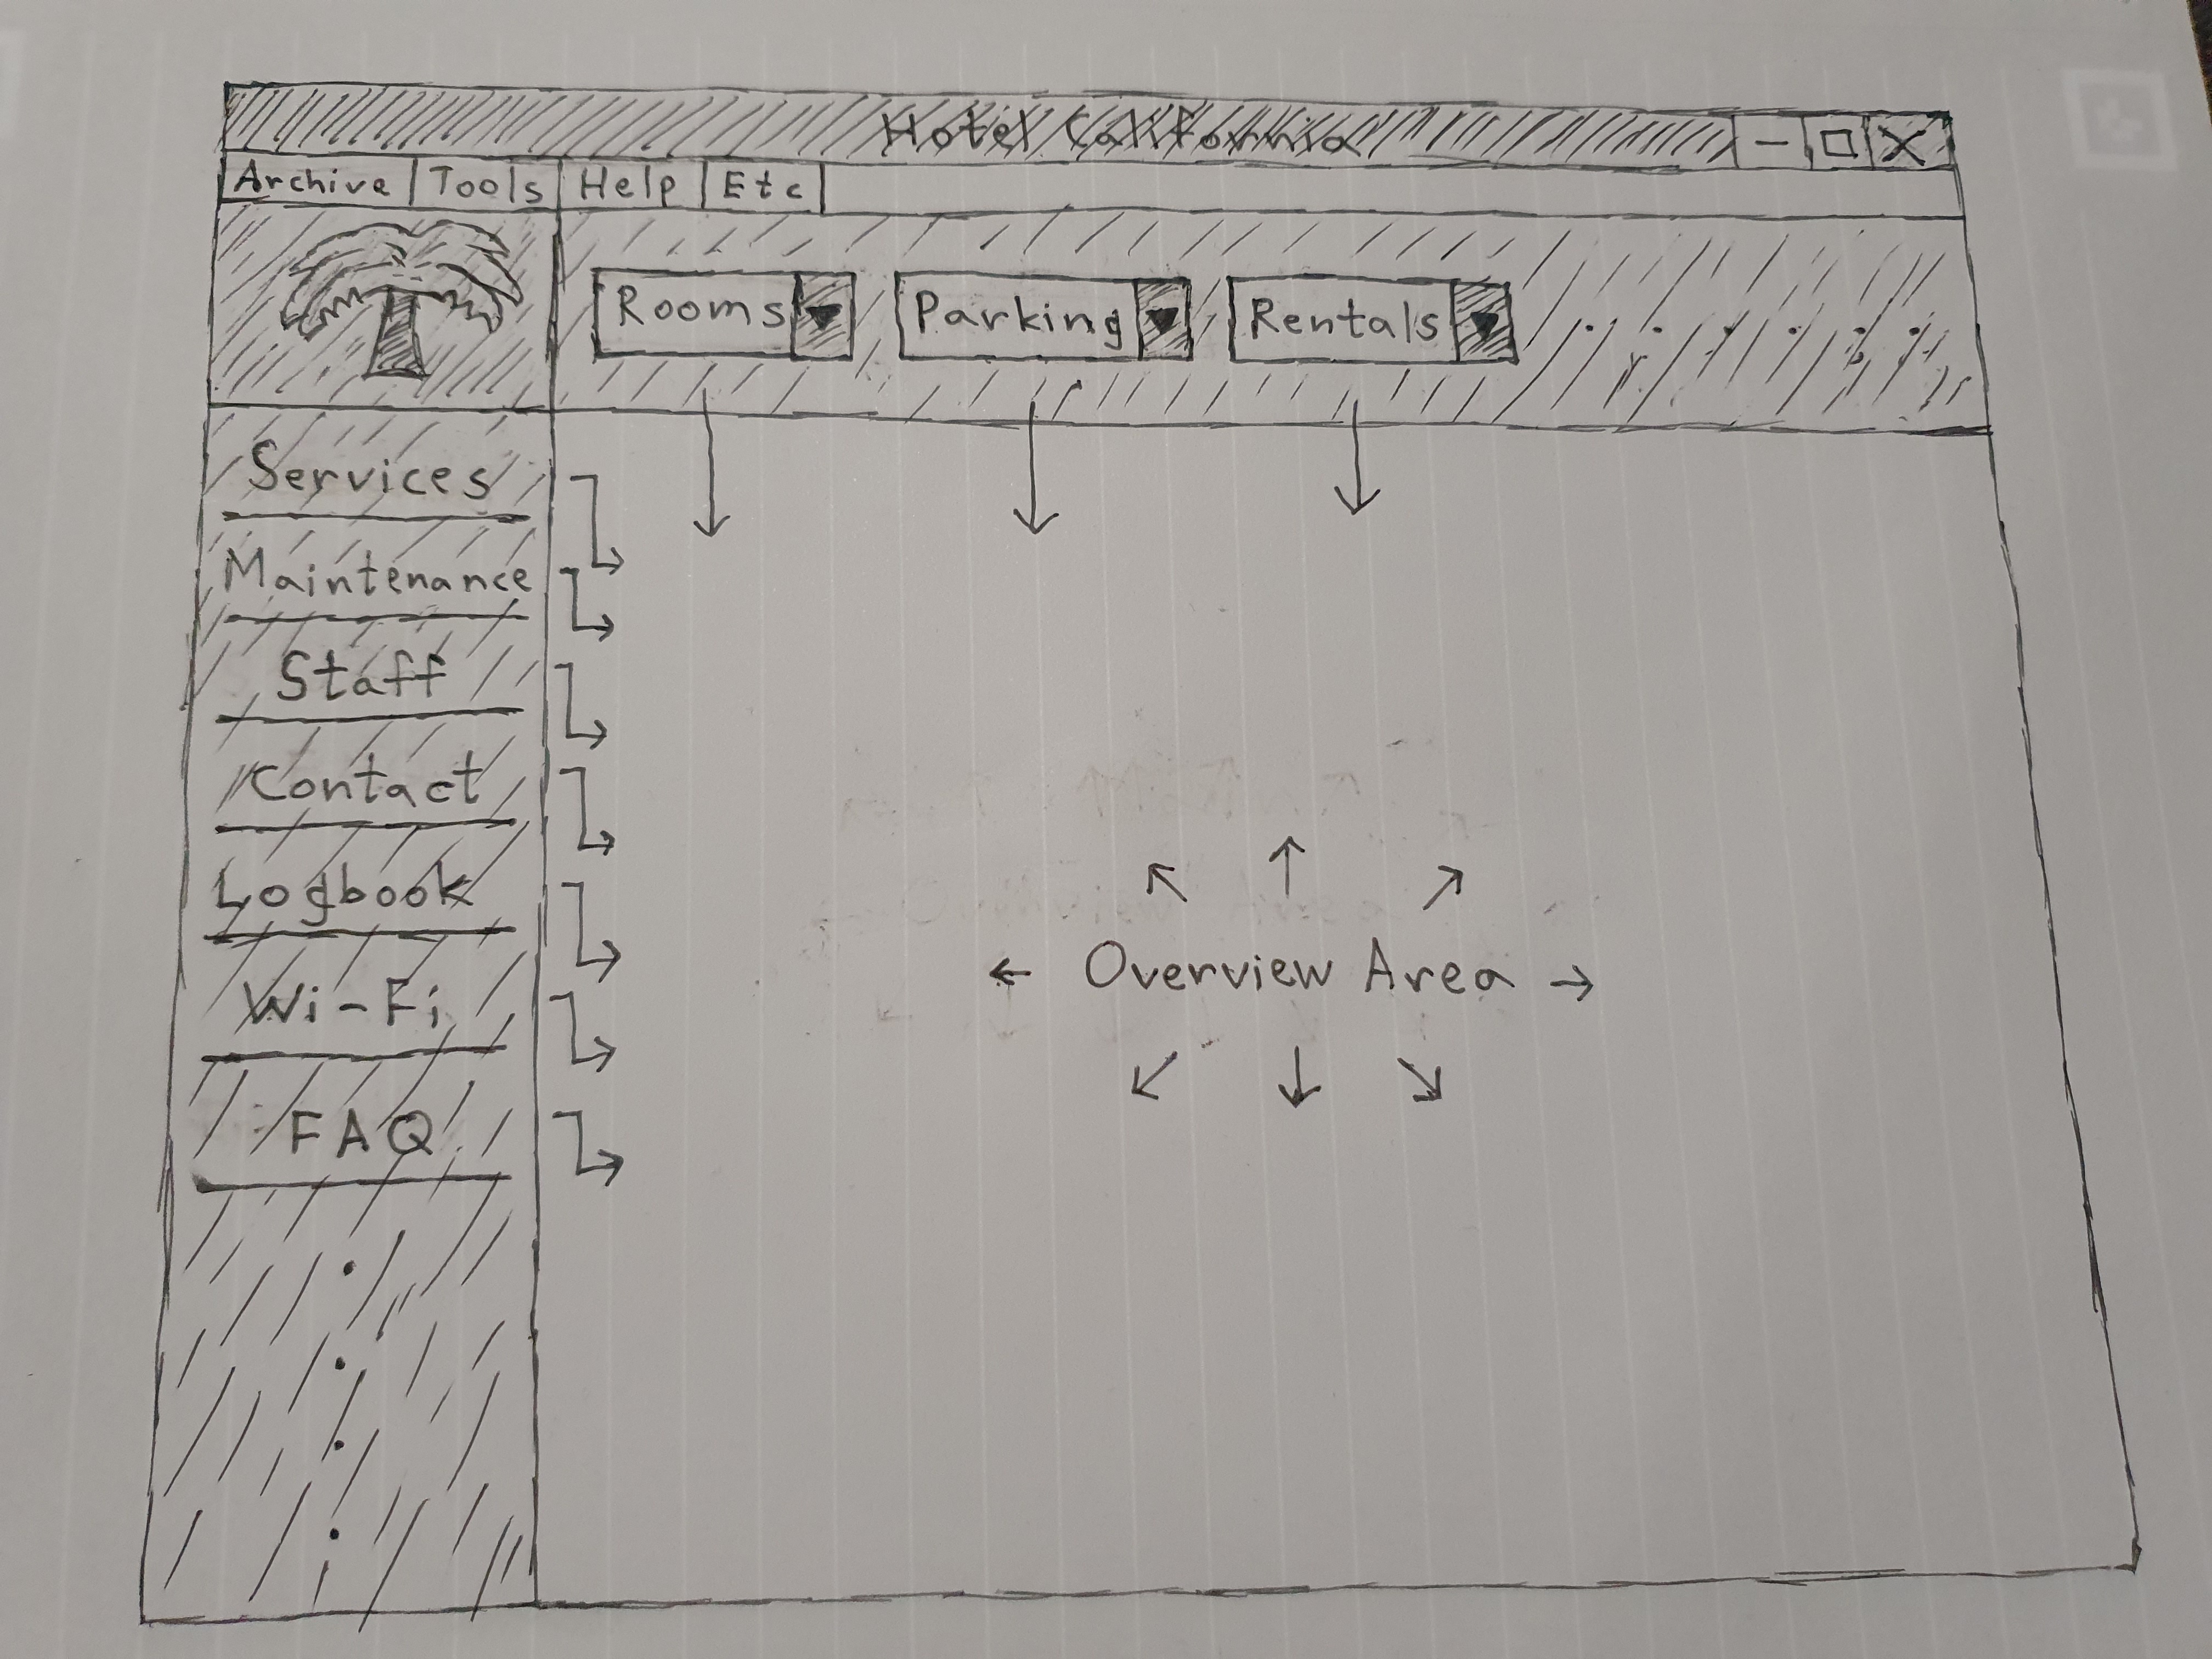 Hotel California
Archive Tools Help Etc
Rooms Parking Rentals
Services
Maintenance
Staff
Contact
Logbook
Wi-Fi
FAQ
Overview Area